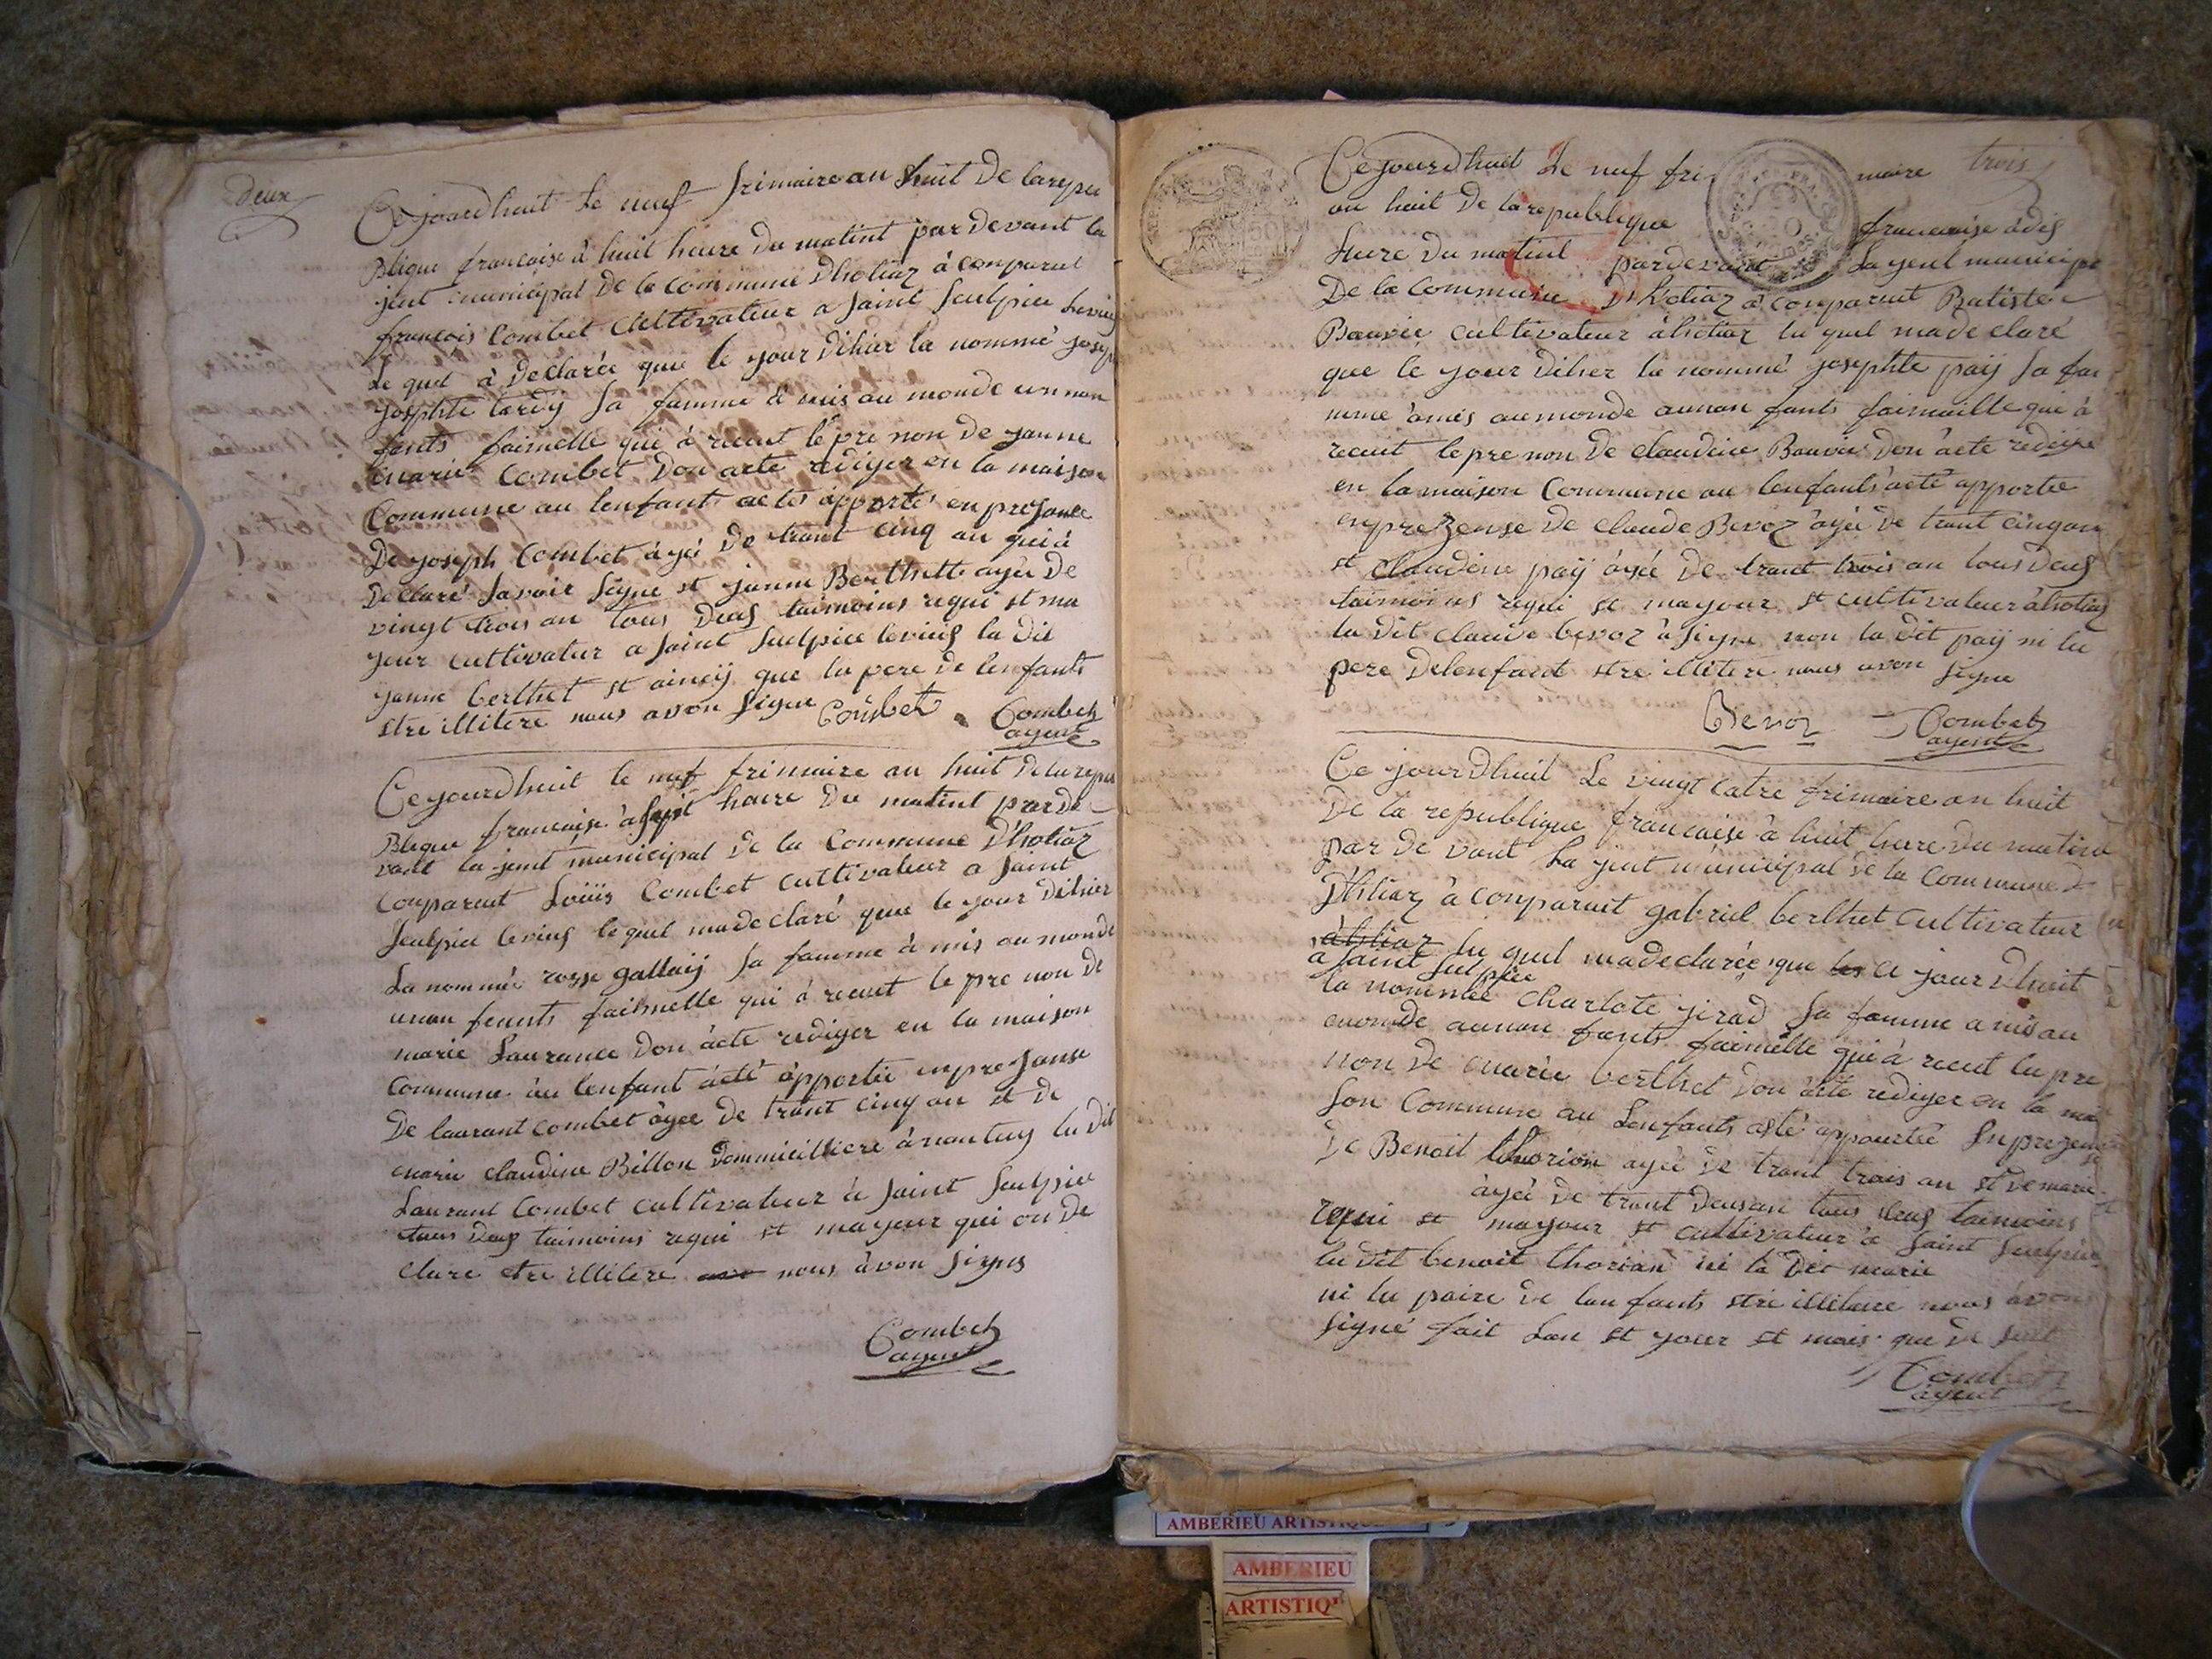 deux
Cejourdhuit le neuf frimaire an huit De larepu
Blique francaise à huit heure du matint pardevant la
jent municipal De la commune Dhotiaz à conparut
francois Combet Cultivateur a Saint Sculpice levieu
le quel à Declarée que le jour dihier la nommé
josephte tardy sa famme à mis au monde un nan
fants faimelle qui à recut le pre non De janne
marie Combet Don acte rediger en la maison
Commune au lenfant aeté apporté en presance
De joseph Combet àgé De trant cinq an qui à
Declaré savoir signe et janne Berthett agée De
vingt trois an tous Deus taimoins requi et ma
jeur cultivateur a Saint Sculpice levieus la dit
janne berthet et aincÿ que lu pere De lenfants
etre illitere nous avon signe Combet Combet
agent
Cejourdhuit le neuf frimaire an huit Delarepu
Blique francaise à sept heure Du matint parde
vant la jent municipal De la Commune D'hotiaz
Conparut Loüis Combet cultivateur a Saint
Sculpice levius lequel madeclaré que le jour Dihier
La nommée rosse gallaÿ sa famme à mis au monde
unan feants faihmelle qui à recuet le pre non De
marie Laurance Don àcte rediger en la maison
Commune àu lenfant àeté àpportée en presanse
De laurant combet àgee De trant cinq an et De
marie claudine Billon Dommicilliere à nantuy lu dit
Laurant Combet cultivateur à Saint Sculpice
tous Deus taimoins requi et majeur qui on De
clare etre illitere nous àvon signs
Combet
agent
Cejourdhuit Le neuf fri maire trois
an huit De larepublique francaise àdis
heure Du matint pardevant Lajent municipa
De la Commune D'hotiaz à conparuit Batiste
Bouvier cultivateur àhotiaz lu quel madeclaré
que le jour Dihier la nommé josephte paÿ sa fa
mme àmis aumonde aunan fants faimaille qui à
recuit lepre non De claudine Bouvier Don àcte redigre
en la maison Commune au lenfants àeté apportée
enprezense De claude Bevoz àgée De trant cinq an
et claudine paÿ àgée De trant trois an tous Deus
taimoins requi et majour et cultivateur àhotiaz
lu Dit claude bevoz à signe non la Dit paÿ ni lu
pere Delenfant etre illitere nous avon signe
Bevoz Combet
agent
Ce jourDhuit Le vingt catre frimaire an huit
De la republique francaise à huit heure Du matint
par De vant La jent municipal de la Commune
D'hotiaz à conparuit gabriel berthet cultivateur
àhotiaz lu quel madeclarée que les ce jourDhuit
a Saint Sculpice
la nommée charlote jirad sa famme a mis au
monde aunan fants faimelle qui à recut lu pre
non De marie berthet Don àcte rediger en la mai
son Commune au Lenfants aeté appourtée Inprezen
se
De Benoit thorion agée De trant trois an et De marie
àgéé De trant Deus an tous Deus taimoins
requi et majour et cultivateur à Saint Sculpice
lu Dit benoit thorian ni la Dit marie
ni lu paire De lan fants etre illitaire nous avon
signé fait Lan et jour et mais que De sut
Combet
agent
AMBERIEU ARTISTIQUE
AMBERIEU
ARTISTIQ